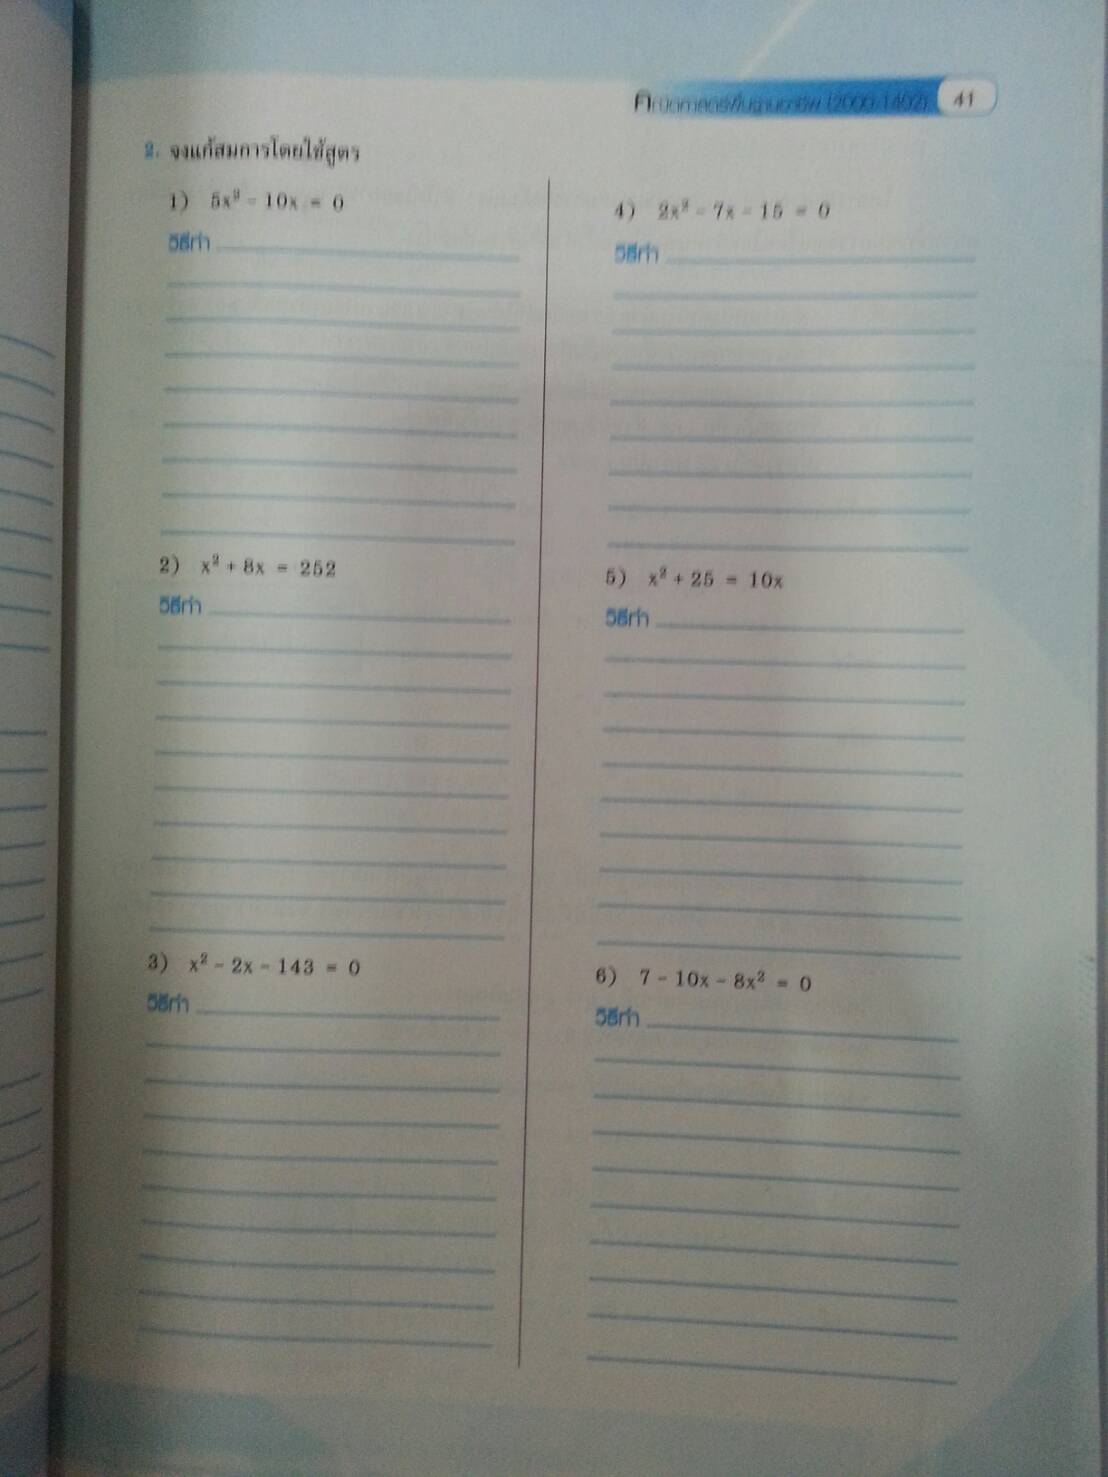 คณิตศาสตร์พื้นฐานอาชีพ (2000-1402) 41
2. จงแก้สมการโดยใช้สูตร
1) 5x² - 10x = 0
วิธีทำ
2) x² + 8x = 252
วิธีทำ
3) x² - 2x - 143 = 0
วิธีทำ
4) 2x² - 7x - 15 = 0
วิธีทำ
5) x² + 25 = 10x
วิธีทำ
6) 7 - 10x - 8x² = 0
วิธีทำ